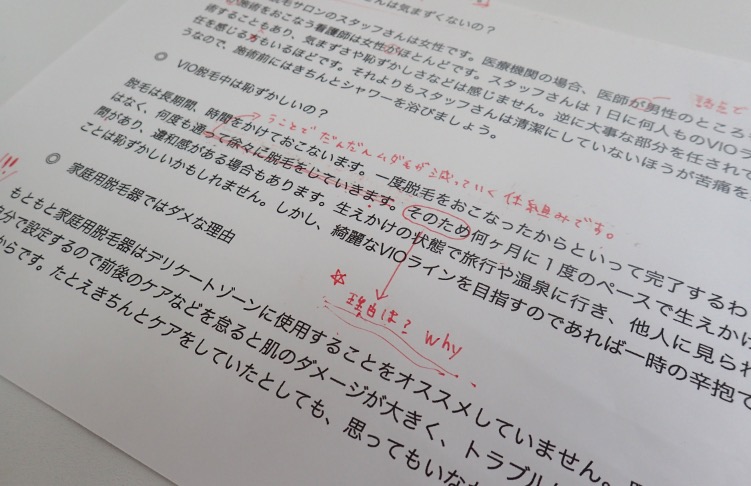 脱毛サロンのスタッフさんは女性です。医療機関の場合、医師が男性のところ
施術をおこなう看護師は女性がほとんどです。スタッフさんは1日に何人ものVIO
術することもあり、気まずさや恥ずかしさなどは感じません。逆に大事な部分を任されて
任を感じる方もいるほどです。それよりもスタッフさんは清潔にしていないほうが苦痛を
うなので、施術前にはきちんとシャワーを浴びましょう。
◎ VIO脱毛中は恥ずかしいの?
うことでだんだんムダ毛が減っていく仕組みです。
脱毛は長期間、時間をかけておこないます。一度脱毛をおこなったからといって完了するわ
はなく、何度も通って徐々に脱毛をしていきます。そのため何ヶ月に1度のペースで生えかけ
間があり、違和感がある場合もあります。生えかけの状態で旅行や温泉に行き、他人に見られ
ことは恥ずかしいかもしれません。しかし、綺麗なVIOラインを目指すのであれば一時の辛抱で
☆ 理由は? why
◎ 家庭用脱毛器ではダメな理由
もともと家庭用脱毛器はデリケートゾーンに使用することをオススメしていません。
分で設定するので前後のケアなどを怠ると肌のダメージが大きく、トラブル
からです。たとえきちんとケアをしていたとしても、思ってもいな